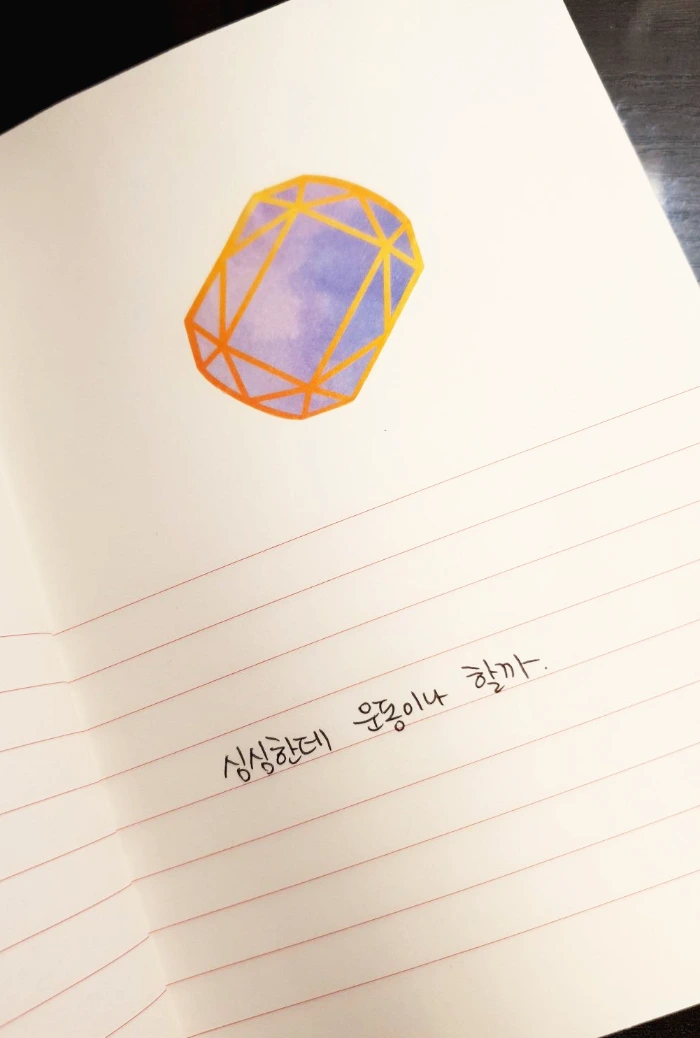 심심한데 운동이나 할까.